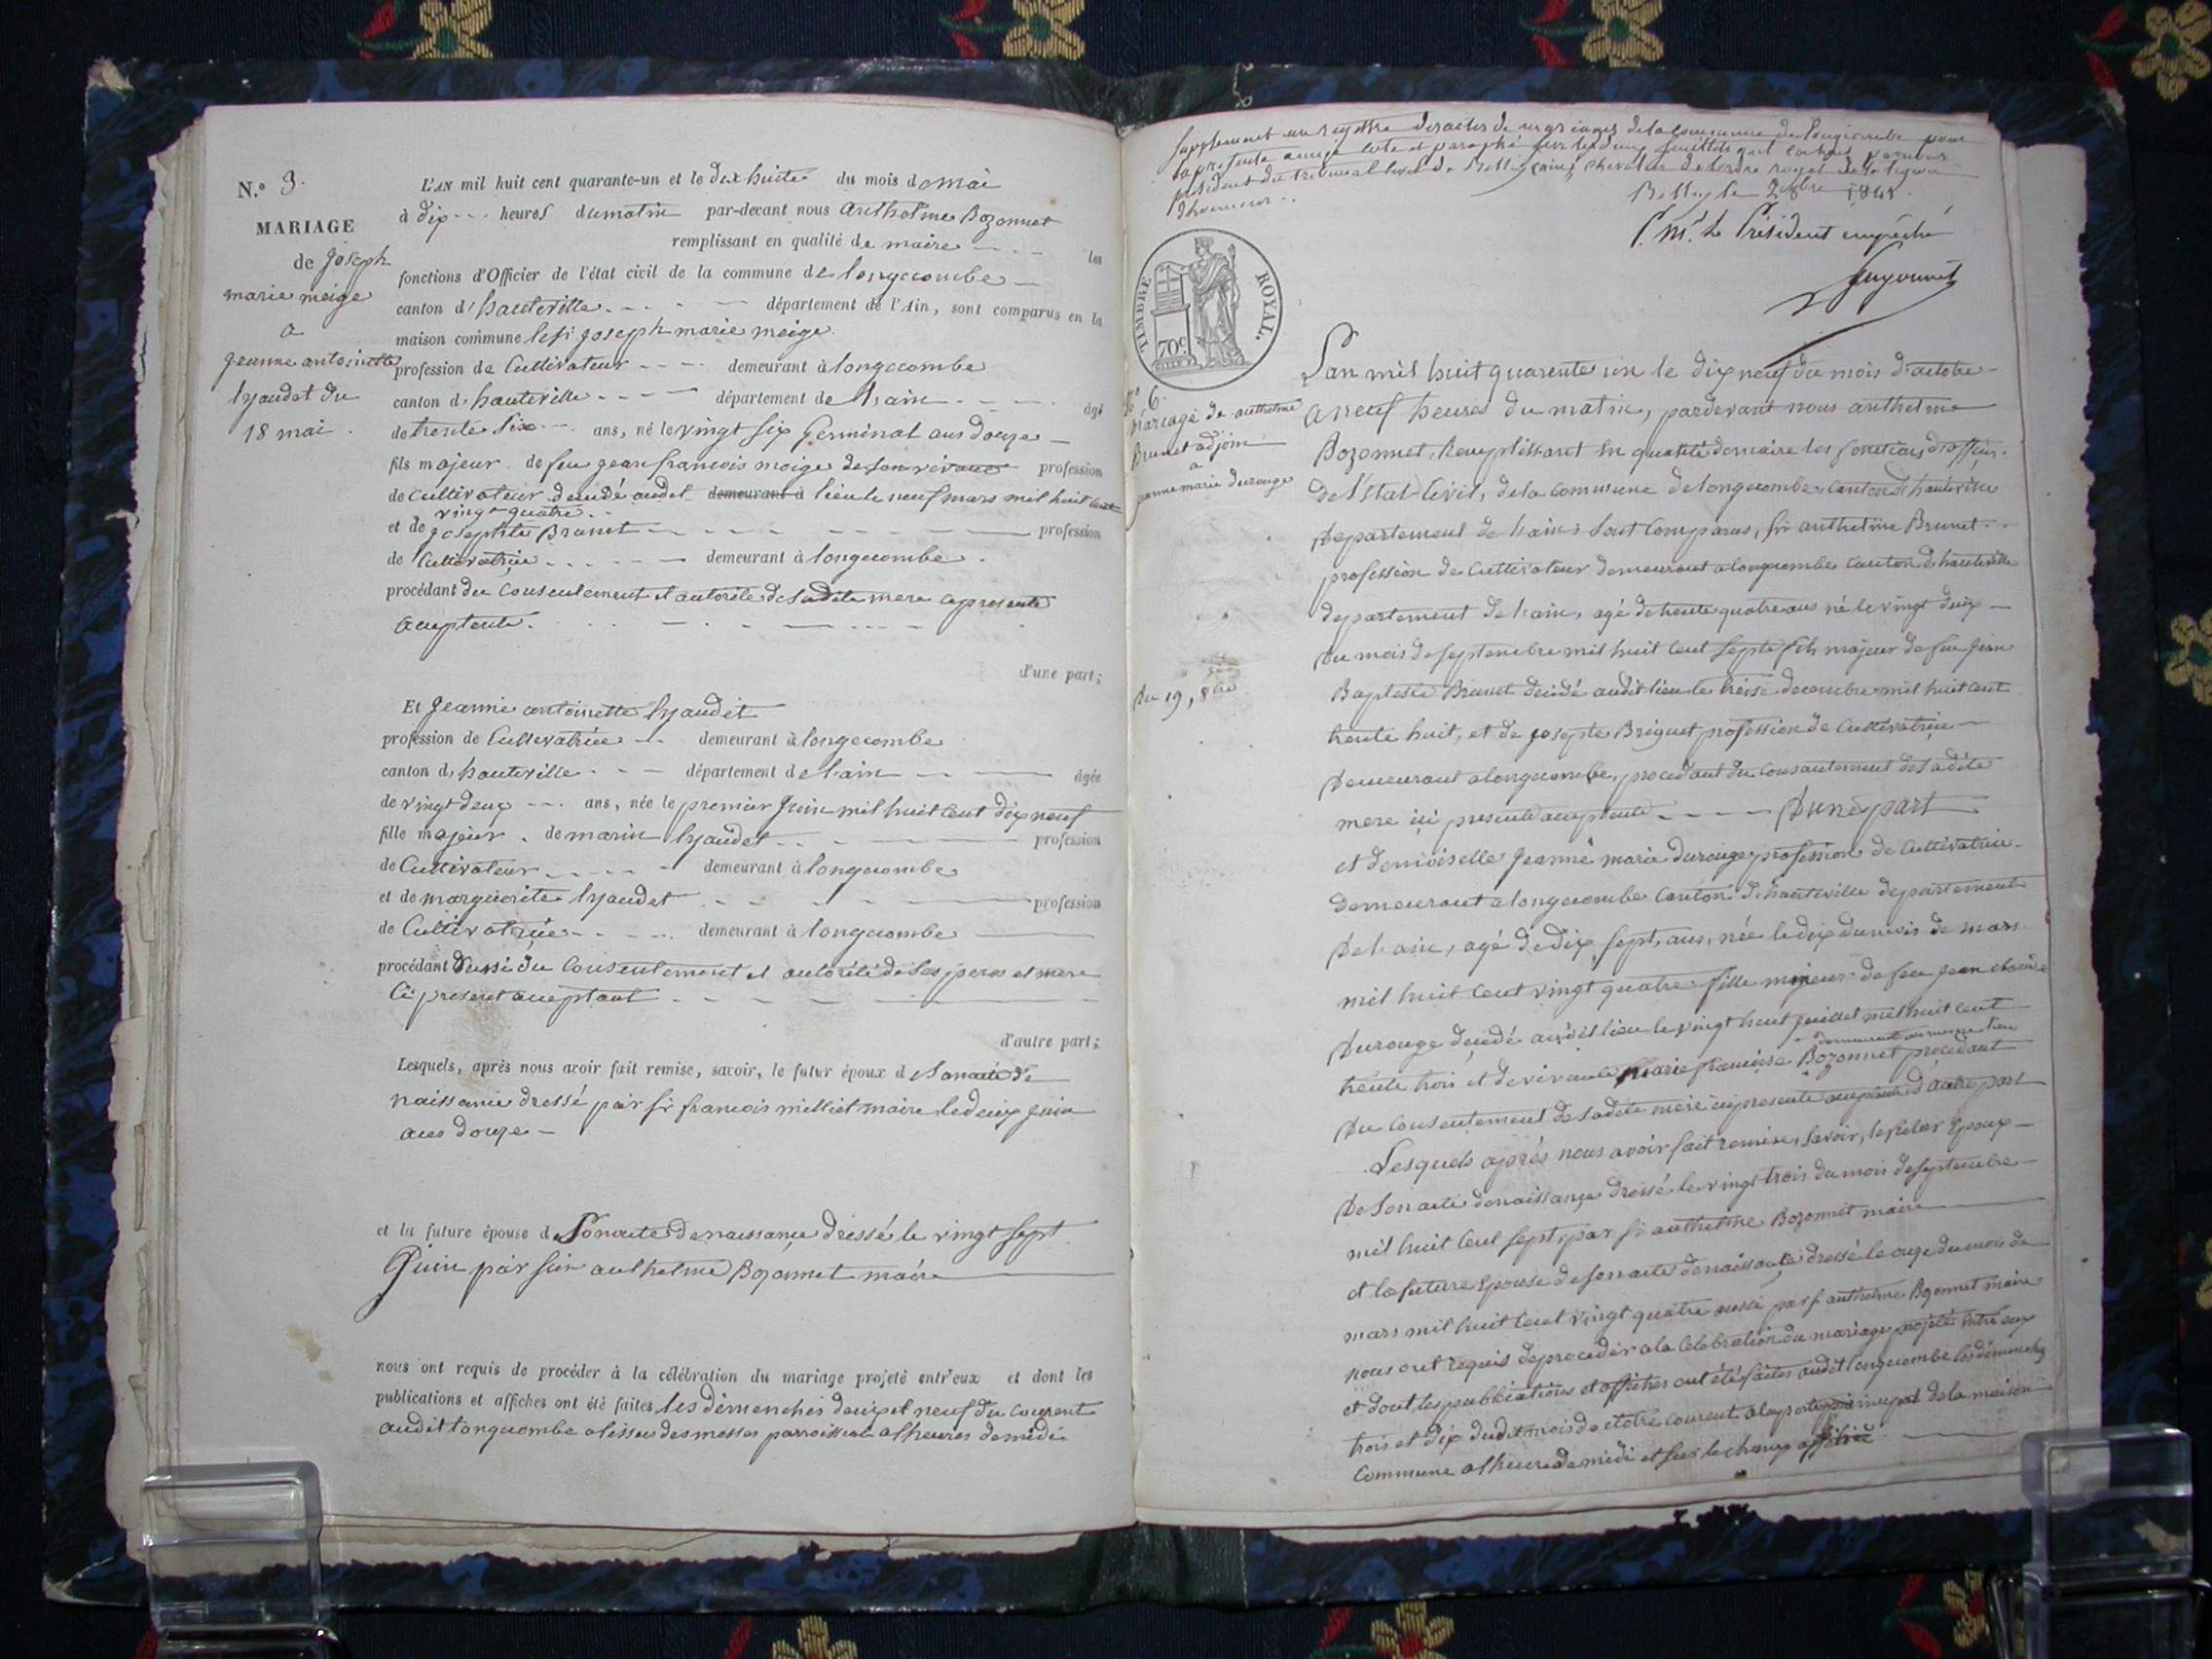 N.o 3.
MARIAGE
de joseph
marie meige
a
jeanne antoinette
lyaudet du
18 mai.
L'AN mil huit cent quarante-un et le dix huite du mois de mai
à dix heures dumatin par-devant nous anthelme Bozonnet
remplissant en qualité de maire les
fonctions d'Officier de l'état civil de la commune de longecombe
canton d'hauteville département de l'Ain, sont comparus en la
maison commune le sr joseph marie meige
profession de Cultivateur demeurant à longecombe
canton d'hauteville département de l'ain âgé
de trente six ans, né le vingt six Germinal ans douze
fils majeur de feu jean francois meige de son vivant profession
de Cultivateur décédé audit demeurant à lieu le neuf mars mil huit cent
vingt quatre
et de josephte Brunet profession
de Cultivatrice demeurant à longecombe
procédant du Consentement et autorité de sadite mere cy presente
aceptente.
d'une part;
Et jeanne antoinette lyaudet
profession de Cultivatrice demeurant à longecombe
canton d'hauteville département de l'ain âgée
de vingt deux ans, née le premier juin mil huit cent dix neuf
fille majeur de marin lyaudet profession
de Cultivateur demeurant à longecombe
et de marguerite lyaudet profession
de Cultivatrice demeurant à longecombe
procédant aussi du Consentement et autorité de ses peres et mere
Ci present aceptant
d'autre part;
Lesquels, après nous avoir fait remise, savoir, le futur époux de Son acte de
naissance dressé par sr francois milliet maire le deux juin
ans douze
et la future épouse de Son acte de naissance dressé le vingt sept
Juin par sieur anthelme Bozonnet maire
nous ont requis de procéder à la célébration du mariage projeté entr'eux et dont les
publications et affiches ont été faites les dimenches deux et neuf du Courent
audit longecombe a lissus des messes parroissial a lheures de midi
Supplement au registre des actes de mariages de la Commune de longecombe pour
la presente année coté et paraphé sur les deux feuillets par nous
president du tribunal civil de Belley, chevalier de lordre royal de la legion
dhonneur
Belley le 2 8bre 1841.
P. Mr. le Président empêché
TIMBRE ROYAL.
70c.
no 6.
Mariage de anthelme
Brunet adjoin
a
jeanne marie durouge
Du 19, 8bre
Lan mil huit quarente un le dix neuf du mois d'actobre
a neuf heures du matin, pardevant nous anthelme
Bozonnet, Remplissant en qualité de maire les fonctions d'officier
de l'Etat Civil, de la commune de longecombe Canton d'hauteville
Departement de l'ain; Sont Comparus, sr anthelme Brunet
profession de Cultivateur demeurant a longecombe Canton d'hauteville
departement de l'ain, agé de trente quatre ans né le vingt deux
Du mois de septembre mil huit Cent Sept fils majeur de feu jean
Baptiste Brunet décédé audit lieu le treise decembre mil huit cent
trente huit, et de josepte Briguet profession de Cultivatrice
Demeurant a longecombe, procedant du Consentement de sadite
mere ici presente aceptente D'une part
et demoiselle Jeanne marie durouge profession de Cultivatrice
demeurant a longecombe Canton d'hauteville departement
De l'ain, agé de dix sept ans, née le dix du mois de mars
mil huit Cent vingt quatre fille mineur de feu jean claude
Durouge décédé audit lieu le vingt huit juillet mil huit cent
demeurant au meme lieu
trente trois et de vivante marie francoise Bozonnet procedant
Du Consentement de sadite mere ici presente aceptente d'autre part
Lesquels après nous avoir fait remise, Savoir, le futur Epoux
De Son acte de naissance dressé le vingt trois du mois de septembre
mil huit Cent Sept, par sr anthelme Bozonnet maire
et la future Epouse de son acte de naissance dressé le onze du mois de
mars mil huit Cent vingt quatre aussi par sr anthelme Bozonnet maire
nous ont requis de proceder a la Celebration du mariage projeté entre eux
et dont les publications et affiches ont été faites audit longecombe les dimenches
trois et dix dudit mois de octobre Courent a la porte principal de la maison
Commune a lheure de midi et sur le champ affiché